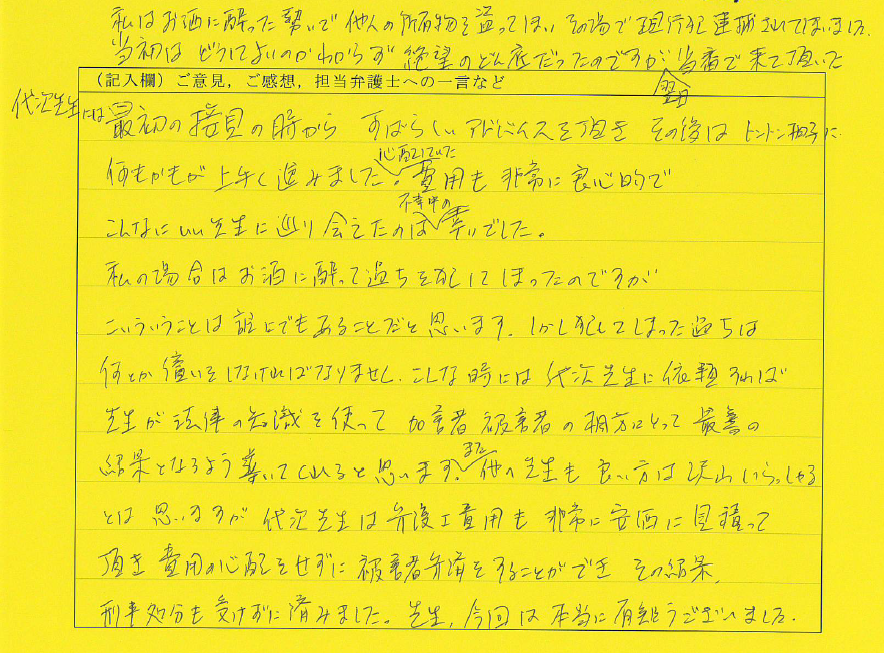 私はお酒に酔った勢いで他人の所有物を盗ってしまい その場で現行犯逮捕されてしまいました.
当初は どうしてよいのかわからず 絶望のどん底だったのですが 当番で来て頂いた
(記入欄) ご意見，ご感想，担当弁護士への一言など
翌日
代次先生には最初の接見の時から すばらしいアドバイスを頂き その後は トントン拍子に
心配していた
何もかもが上手く進みました。費用も 非常に良心的で
不幸中の
こんなにいい先生に巡り会えたのは幸いでした。
私の場合はお酒に酔って過ちを犯してしまったのですが
こういうことは誰にでもあることだと思います. しかし犯してしまった過ちは
何とか償いをしなければなりません. こんな時には 代次先生に依頼すれば
先生が法律の知識を使って 加害者 被害者の両方にとって 最善の
また
結果となるよう導いてくれると思います. 他の先生も 良い方は沢山いらっしゃる
とは 思いますが 代次先生は弁護士費用も 非常に安価に見積って
頂き 費用の心配をせずに被害者弁済をすることができ その結果,
刑事処分も受けずに済みました。先生, 今回は本当に有難うございました.